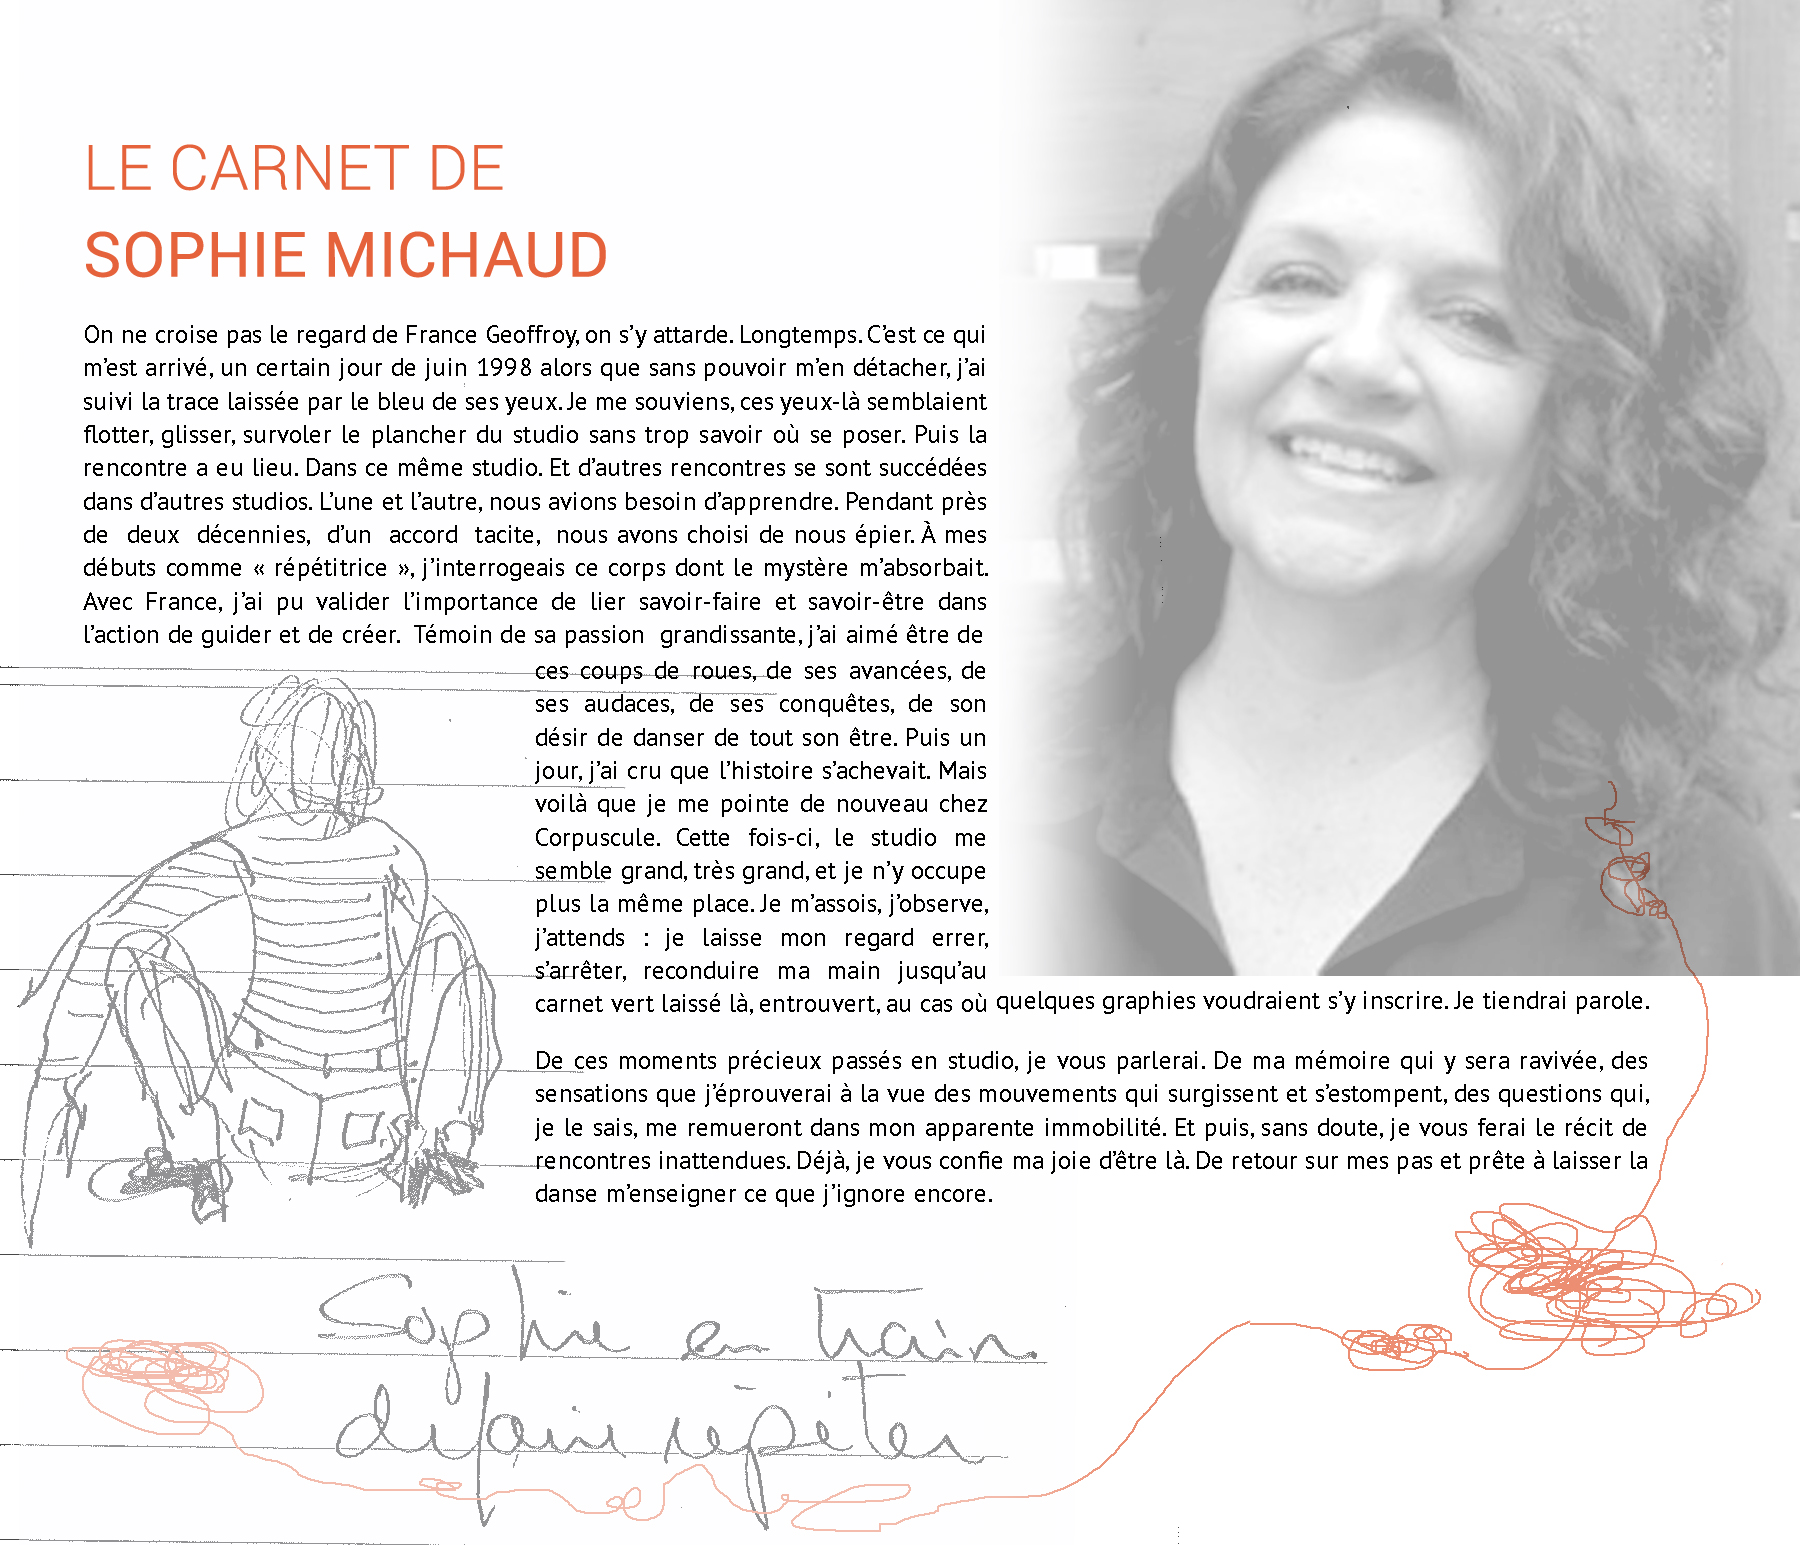 LE CARNET DE
SOPHIE MICHAUD
On ne croise pas le regard de France Geoffroy, on s’y attarde. Longtemps. C’est ce qui
m’est arrivé, un certain jour de juin 1998 alors que sans pouvoir m’en détacher, j’ai
suivi la trace laissée par le bleu de ses yeux. Je me souviens, ces yeux-là semblaient
flotter, glisser, survoler le plancher du studio sans trop savoir où se poser. Puis la
rencontre a eu lieu. Dans ce même studio. Et d’autres rencontres se sont succédées
dans d’autres studios. L’une et l’autre, nous avions besoin d’apprendre. Pendant près
de deux décennies, d’un accord tacite, nous avons choisi de nous épier. À mes
débuts comme « répétitrice », j’interrogeais ce corps dont le mystère m’absorbait.
Avec France, j’ai pu valider l’importance de lier savoir-faire et savoir-être dans
l’action de guider et de créer. Témoin de sa passion grandissante, j’ai aimé être de
ces coups de roues, de ses avancées, de
ses audaces, de ses conquêtes, de son
désir de danser de tout son être. Puis un
jour, j’ai cru que l’histoire s’achevait. Mais
voilà que je me pointe de nouveau chez
Corpuscule. Cette fois-ci, le studio me
semble grand, très grand, et je n’y occupe
plus la même place. Je m’assois, j’observe,
j’attends : je laisse mon regard errer,
s’arrêter, reconduire ma main jusqu’au
carnet vert laissé là, entrouvert, au cas où quelques graphies voudraient s’y inscrire. Je tiendrai parole.
De ces moments précieux passés en studio, je vous parlerai. De ma mémoire qui y sera ravivée, des
sensations que j’éprouverai à la vue des mouvements qui surgissent et s’estompent, des questions qui,
je le sais, me remueront dans mon apparente immobilité. Et puis, sans doute, je vous ferai le récit de
rencontres inattendues. Déjà, je vous confie ma joie d’être là. De retour sur mes pas et prête à laisser la
danse m’enseigner ce que j’ignore encore.
Sophie en train
de faire répéter